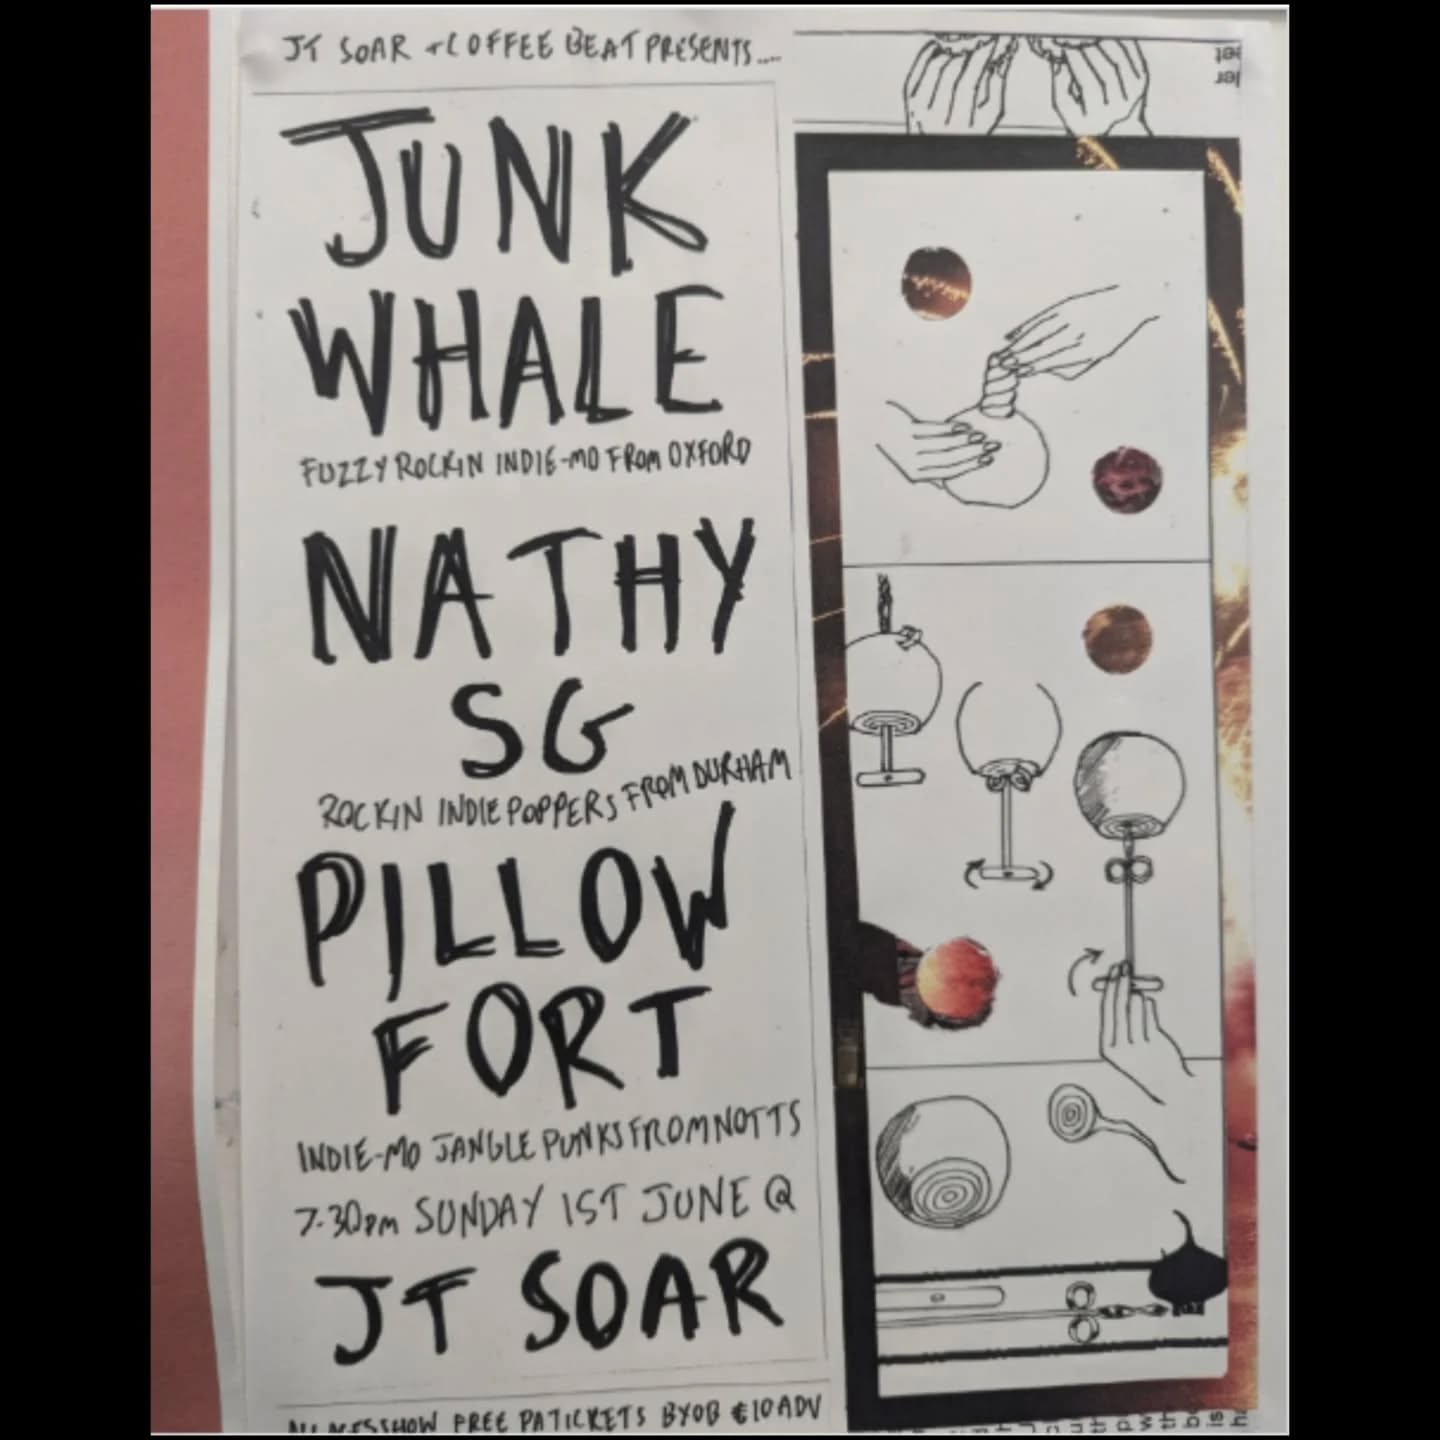 JT SOAR + COFFEE BEAT PRESENTS....
JUNK
WHALE
FUZZY ROCKIN INDIE-MO FROM OXFORD
NATHY
SG
ROCKIN INDIE POPPERS FROM DURHAM
PILLOW
FORT
INDIE-MO JANGLE PUNKS FROM NOTTS
7-30pm SUNDAY 1ST JUNE @
JT SOAR
ALL AGES SHOW FREE PA TICKETS BYOB £10 ADV